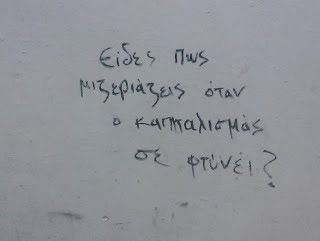 Είδες πως
μιζεριάζεις όταν
ο καπιταλισμός
σε φτύνει?